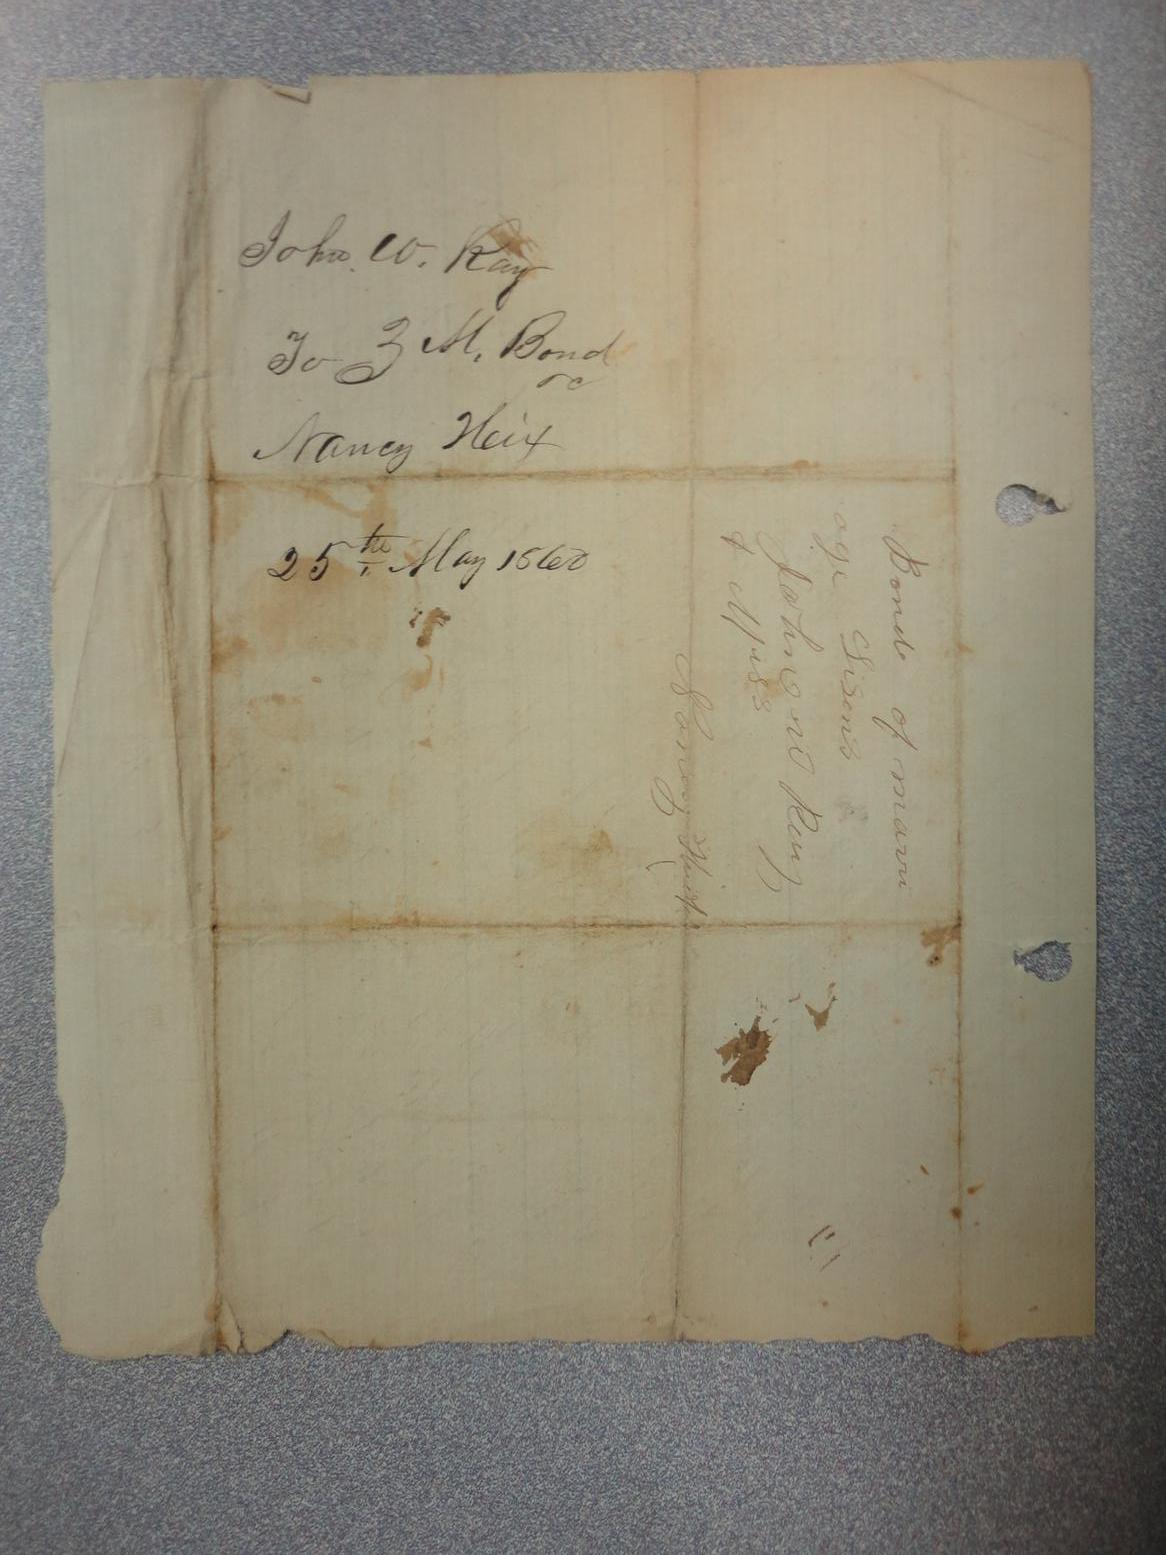 John W. Ray
To Z M. Bond
&c
Nancy Heix
25th May 1860
Bond of marri
age
John W Ray
& Miss
Nancy